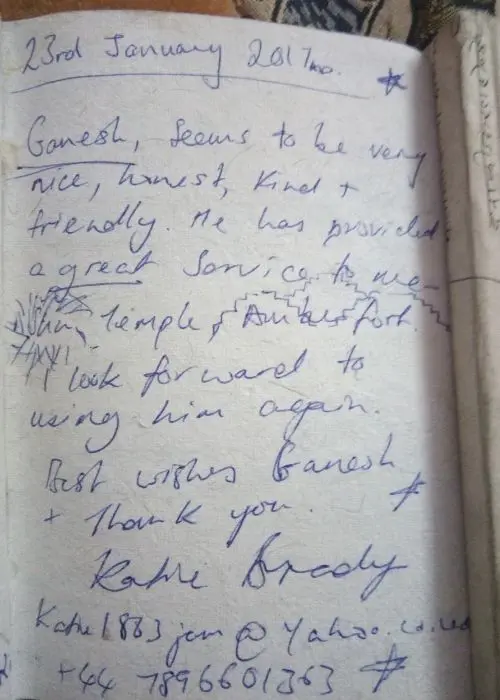 23rd January 2017
Ganesh, Seems to be very
nice, honest, kind +
friendly. He has provided
a great Service to me
Temple, Amber fort.
I look forward to
using him again.
Best wishes Ganesh
+ Thank you.
Katie Brady
Katie1863jam@Yahoo.co.uk
+44 7896601363